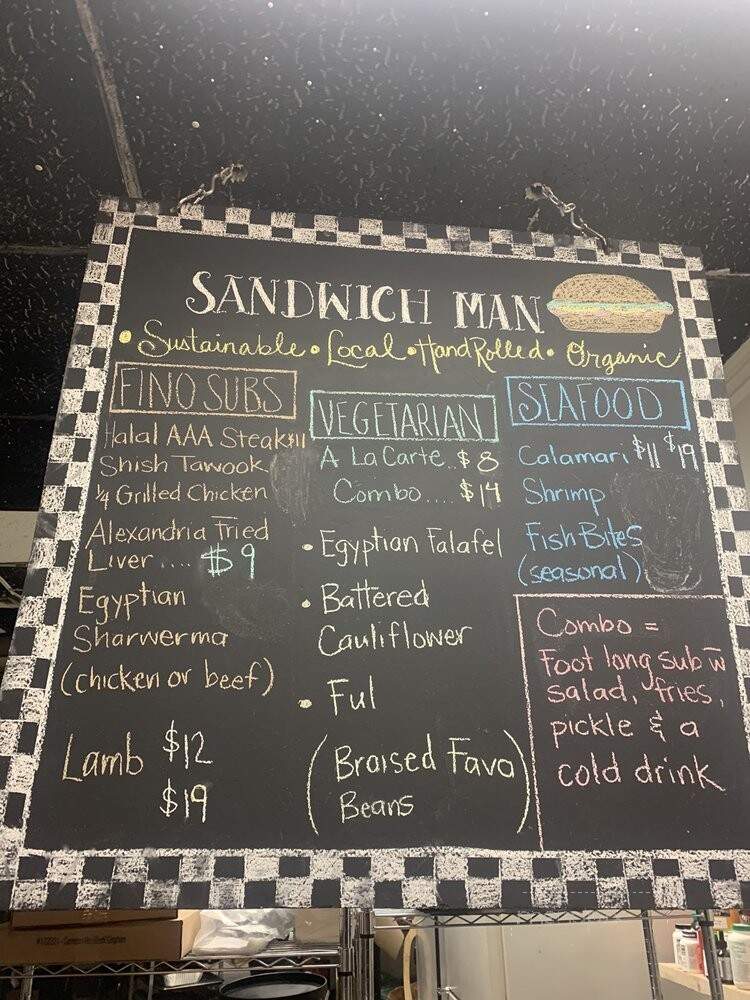 SANDWICH MAN
• Sustainable • Local • Hand Rolled • Organic
FINO SUBS
Halal AAA Steak $11
Shish Tawook
1/4 Grilled Chicken
Alexandria Fried
Liver .... $9
Egyptian
Sharwerma
(chicken or beef)
Lamb $12
$19
VEGETARIAN
A La Carte .. $8
Combo .... $14
• Egyptian Falafel
• Battered
Cauliflower
• Ful
(Braised Fava
Beans)
SEAFOOD
Calamari $11 $19
Shrimp
Fish Bites
(seasonal)
Combo =
Foot long sub w
salad, fries,
pickle & a
cold drink